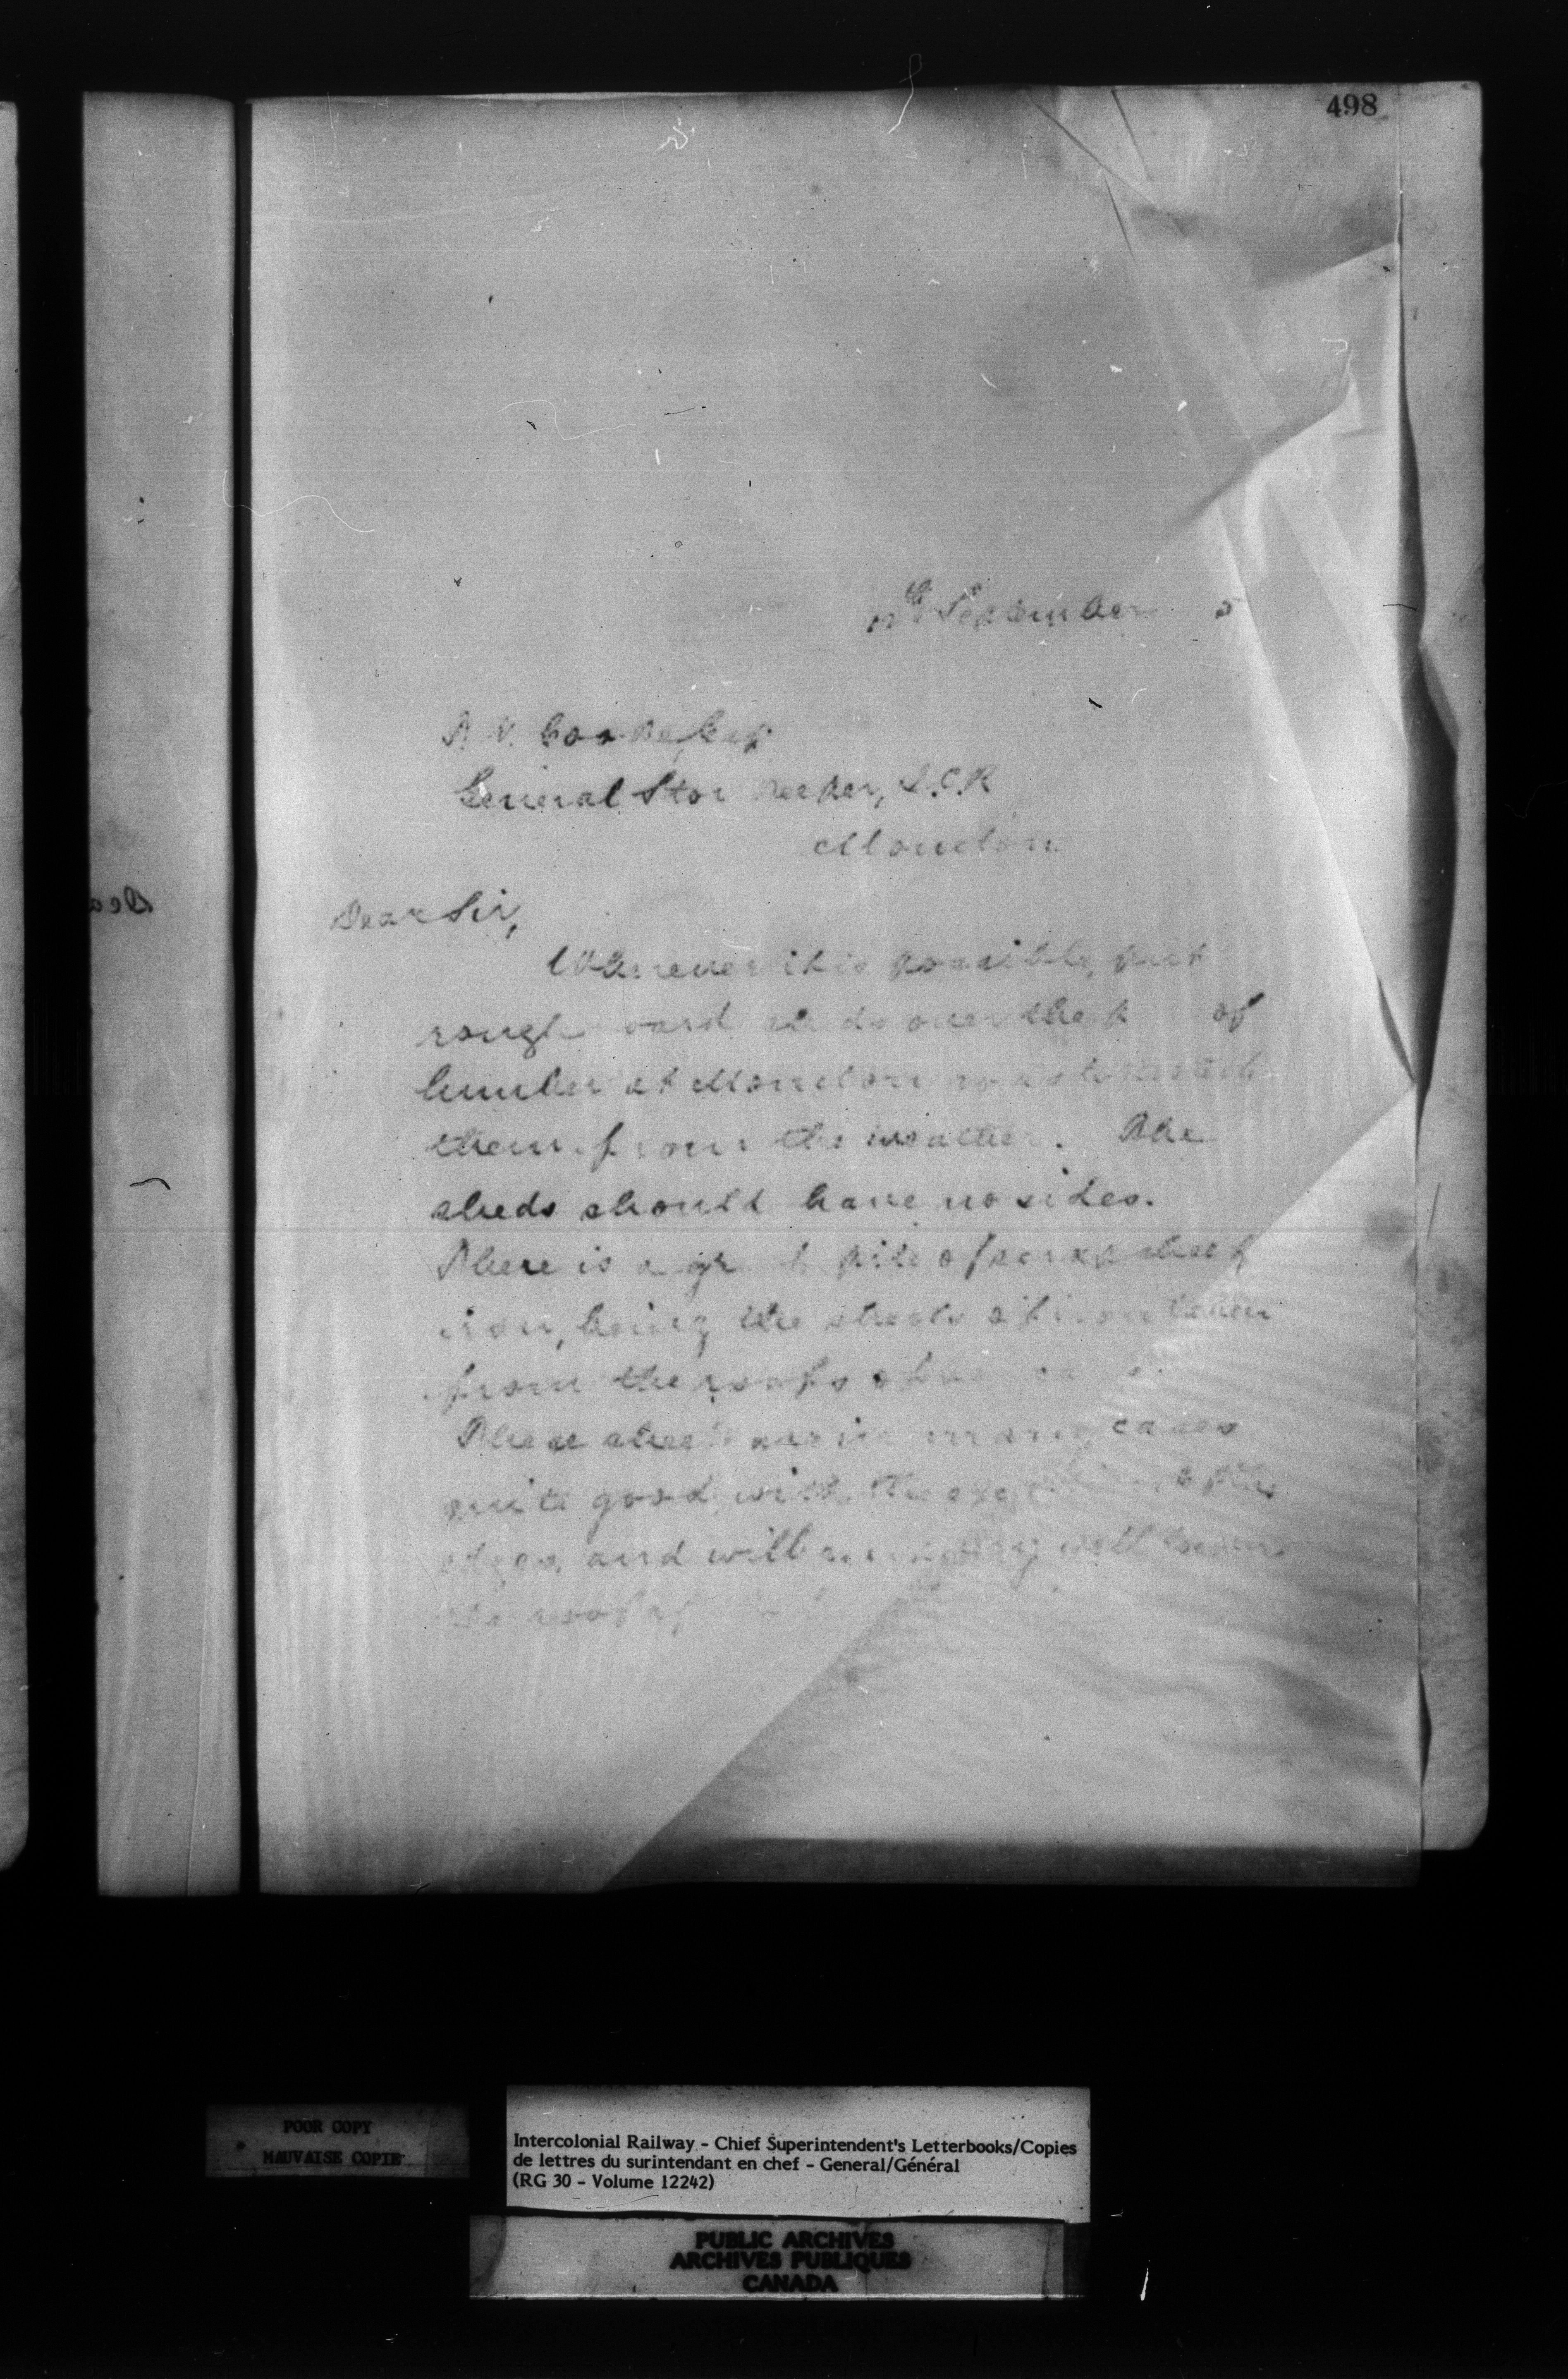 498
September 5
R. V. Cooke, Esq
General Store keeper, I.C.R
Moncton
Dear Sir,
Whenever it is possible, put
rough board sheds over the of
lumber at Moncton so as to protect
them from the weather. The
sheds should have no sides.
There is a great pile of scrap sheet
iron, being the sheets of iron taken
from the roofs of
These sheets are in many cases
quite good, with the exception of the
edges, and will well
the roof of
POOR COPY
MAUVAISE COPIE
Intercolonial Railway - Chief Superintendent's Letterbooks/Copies
de lettres du surintendant en chef - General/Général
(RG 30 - Volume 12242)
PUBLIC ARCHIVES
ARCHIVES PUBLIQUES
CANADA